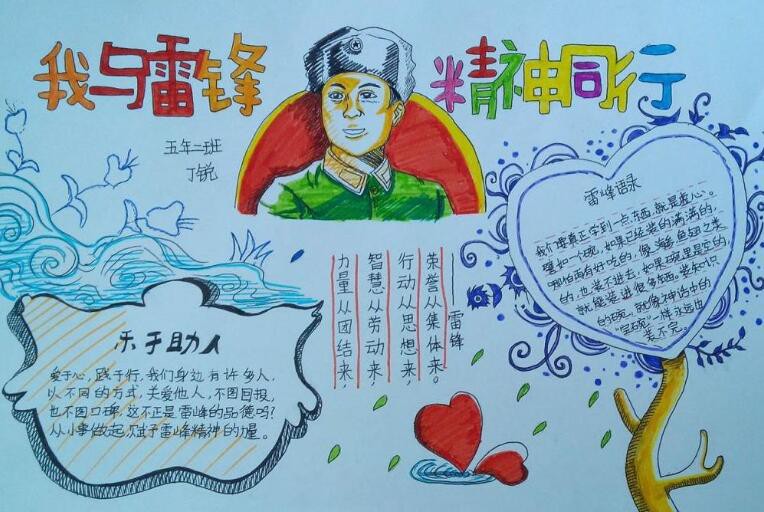 我与雷锋 精神同行
五年二班
丁锐
力量从团结来，
智慧从劳动来，
行动从思想来，
荣誉从集体来。
——雷锋
雷峰语录
我们要真正学到一点东西，就是虚心。
譬如一个碗，如果已经装的满满的，
哪怕再有好吃的，像海参鱼翅之类
的，也装不进去，如果碗里是空的
就能装进很多东西。装知识
的碗，就像神话中的
“宝碗”一样永远也
装不完。
乐于助人
爱于心，践于行，我们身边有许多人，
以不同的方式，关爱他人，不图回报，
也不图口碑，这不正是雷峰的品德吗？
从小事做起，赋予雷峰精神的力量。